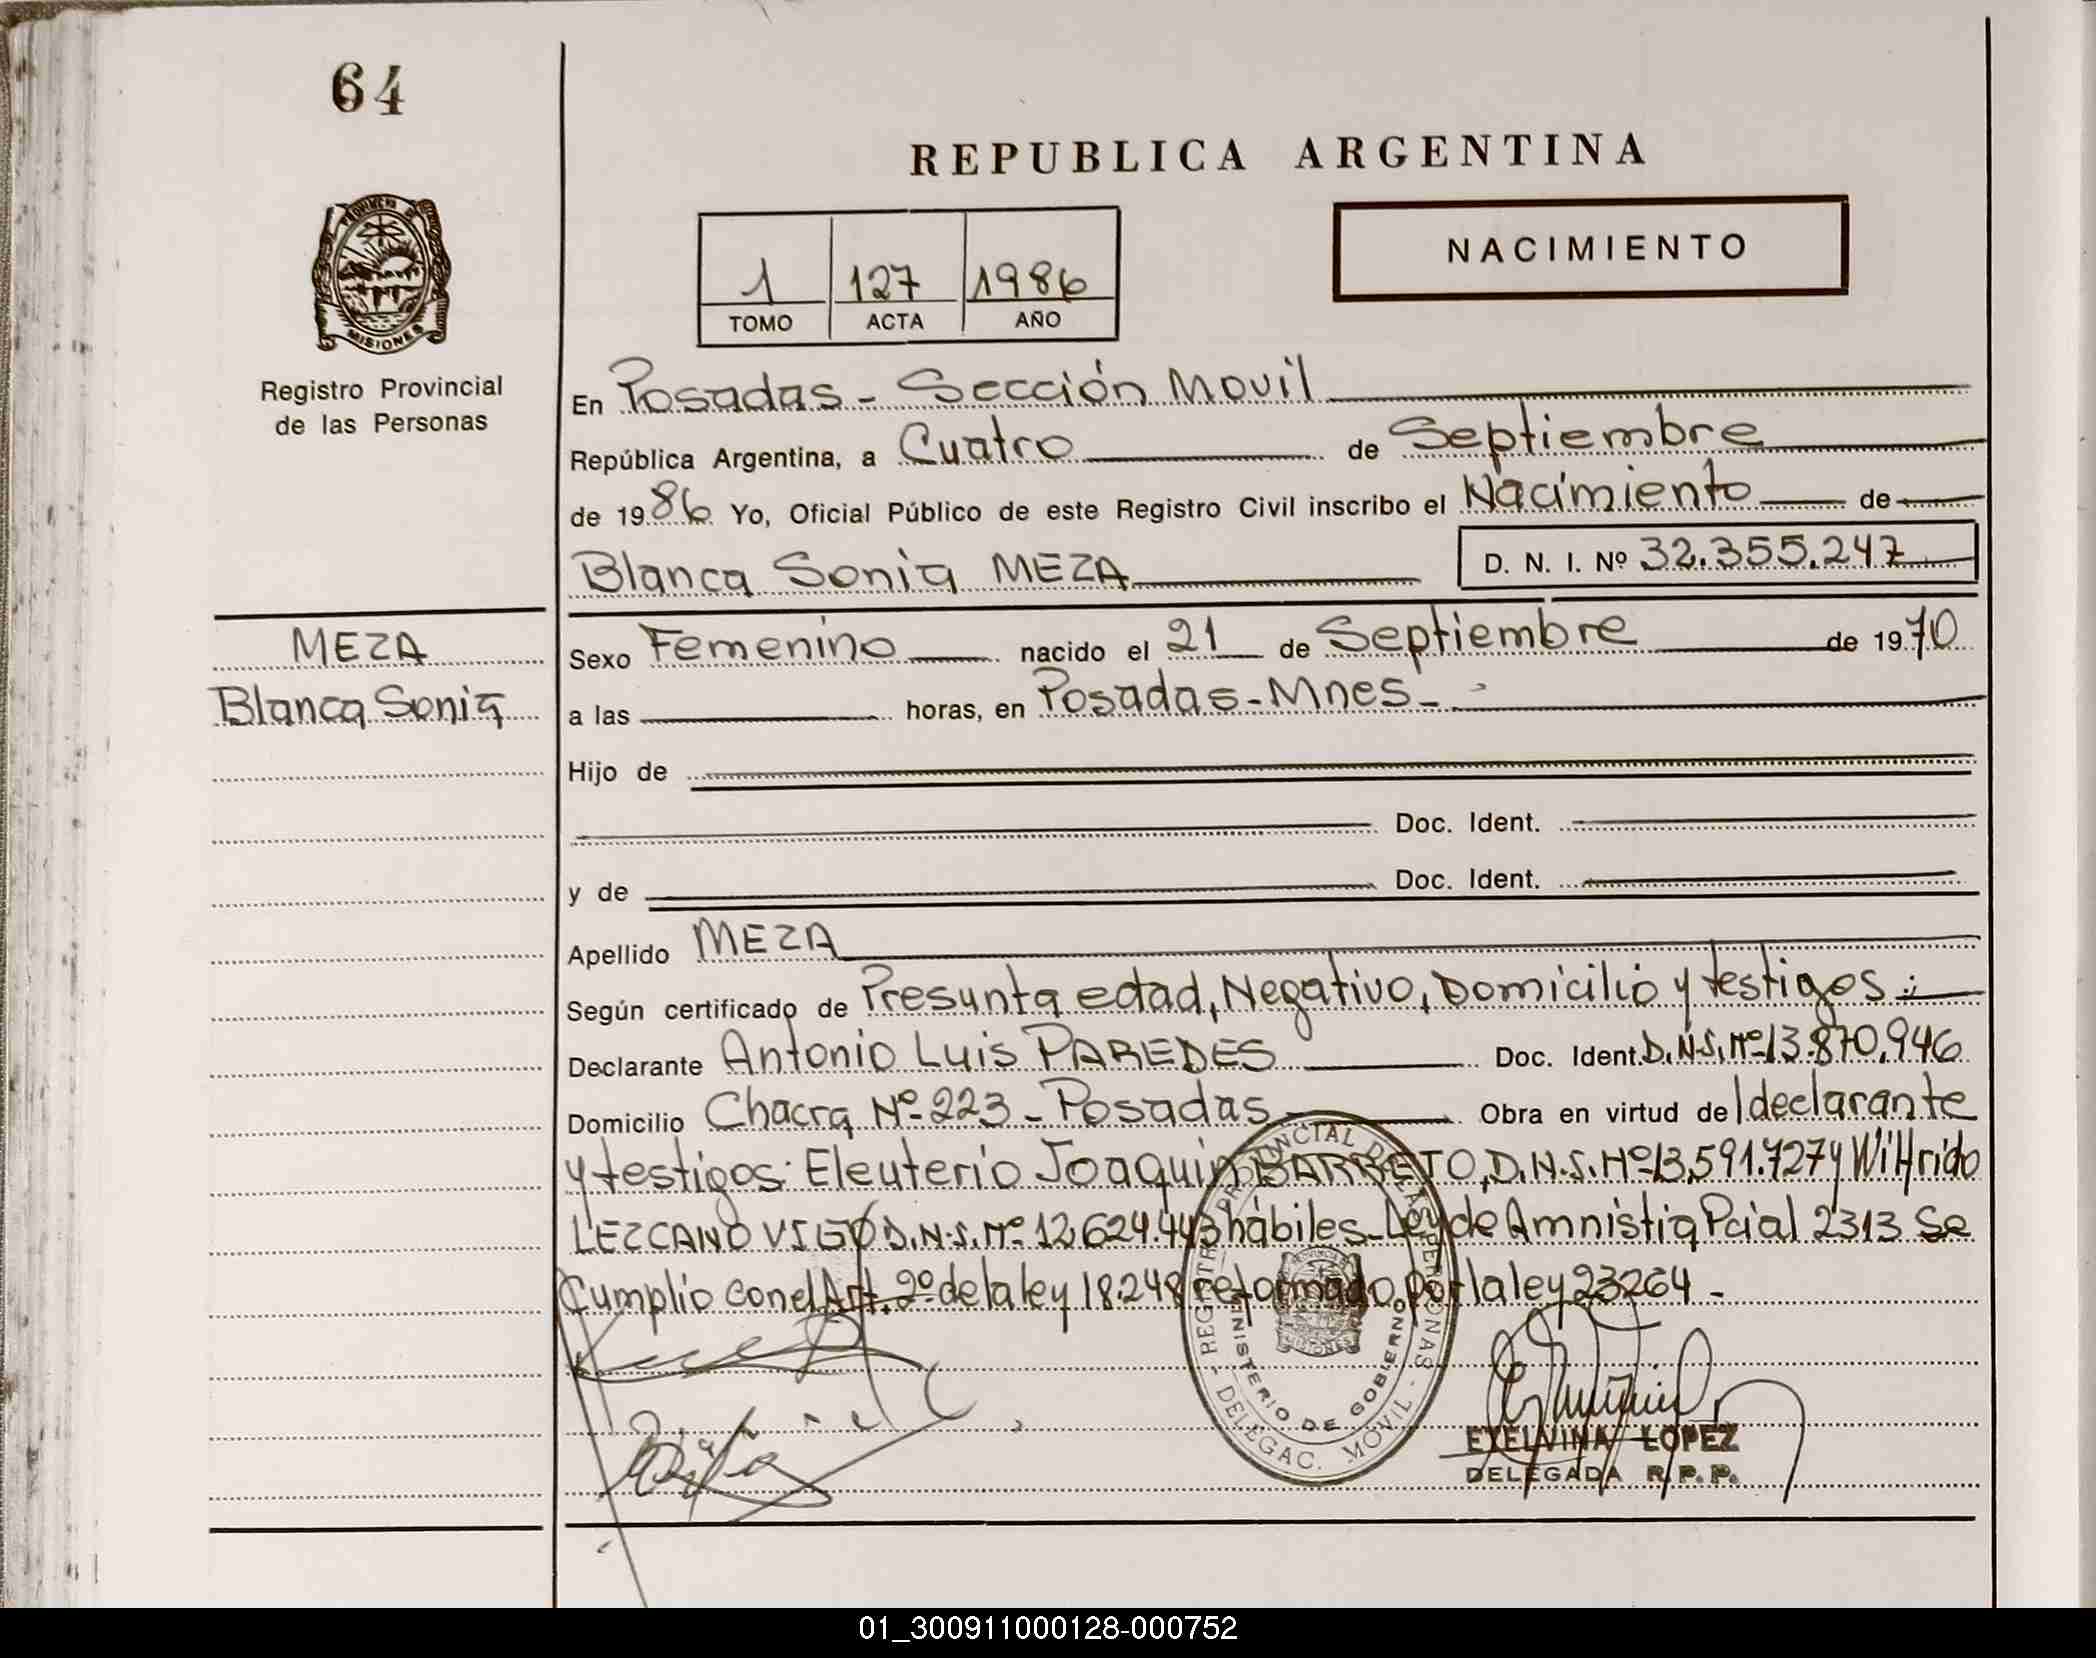 64
REPUBLICA ARGENTINA
PROVINCIA DE
MISIONES
Registro Provincial
de las Personas
NACIMIENTO
1 127 1986
TOMO ACTA AÑO
En Posadas - Sección Movil
República Argentina, a Cuatro de Septiembre
de 1986 Yo, Oficial Público de este Registro Civil inscribo el Nacimiento de
Blanca Sonia MEZA D. N. I. Nº 32.355.247
MEZA
Blanca Sonia
Sexo Femenino nacido el 21 de Septiembre de 1970
a las horas, en Posadas - Mnes -
Hijo de
Doc. Ident.
y de Doc. Ident.
Apellido MEZA
Según certificado de Presunta edad, Negativo, Domicilio y testigos.;
Declarante Antonio Luis PAREDES Doc. Ident. D.N.I. Nº 13.870.946
Domicilio Chacra Nº 223 - Posadas Obra en virtud de declarante
y testigos: Eleuterio Joaquin BARRETO, D.N.I. Nº 13.591.727 y Wilfrido
LEZCANO VIGO D.N.I. Nº 12.624.443 hábiles - Ley de Amnistia Pcial 2313 Se
Cumplio con el Art. 2º de la ley 18.248 reformado por la ley 23264 -
REGISTRO PROVINCIAL DE LAS PERSONAS - DELEGAC. MOVIL -
MINISTERIO DE GOBIERNO
EXELVINA LOPEZ
DELEGADA R.P.P.
01_300911000128-000752